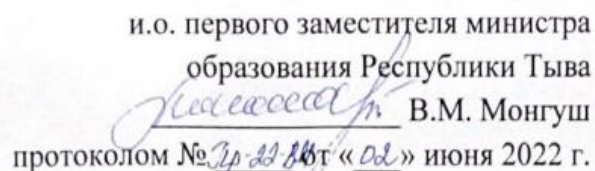 и.о. первого заместителя министра
образования Республики Тыва
В.М. Монгуш
протоколом № от «02» июня 2022 г.